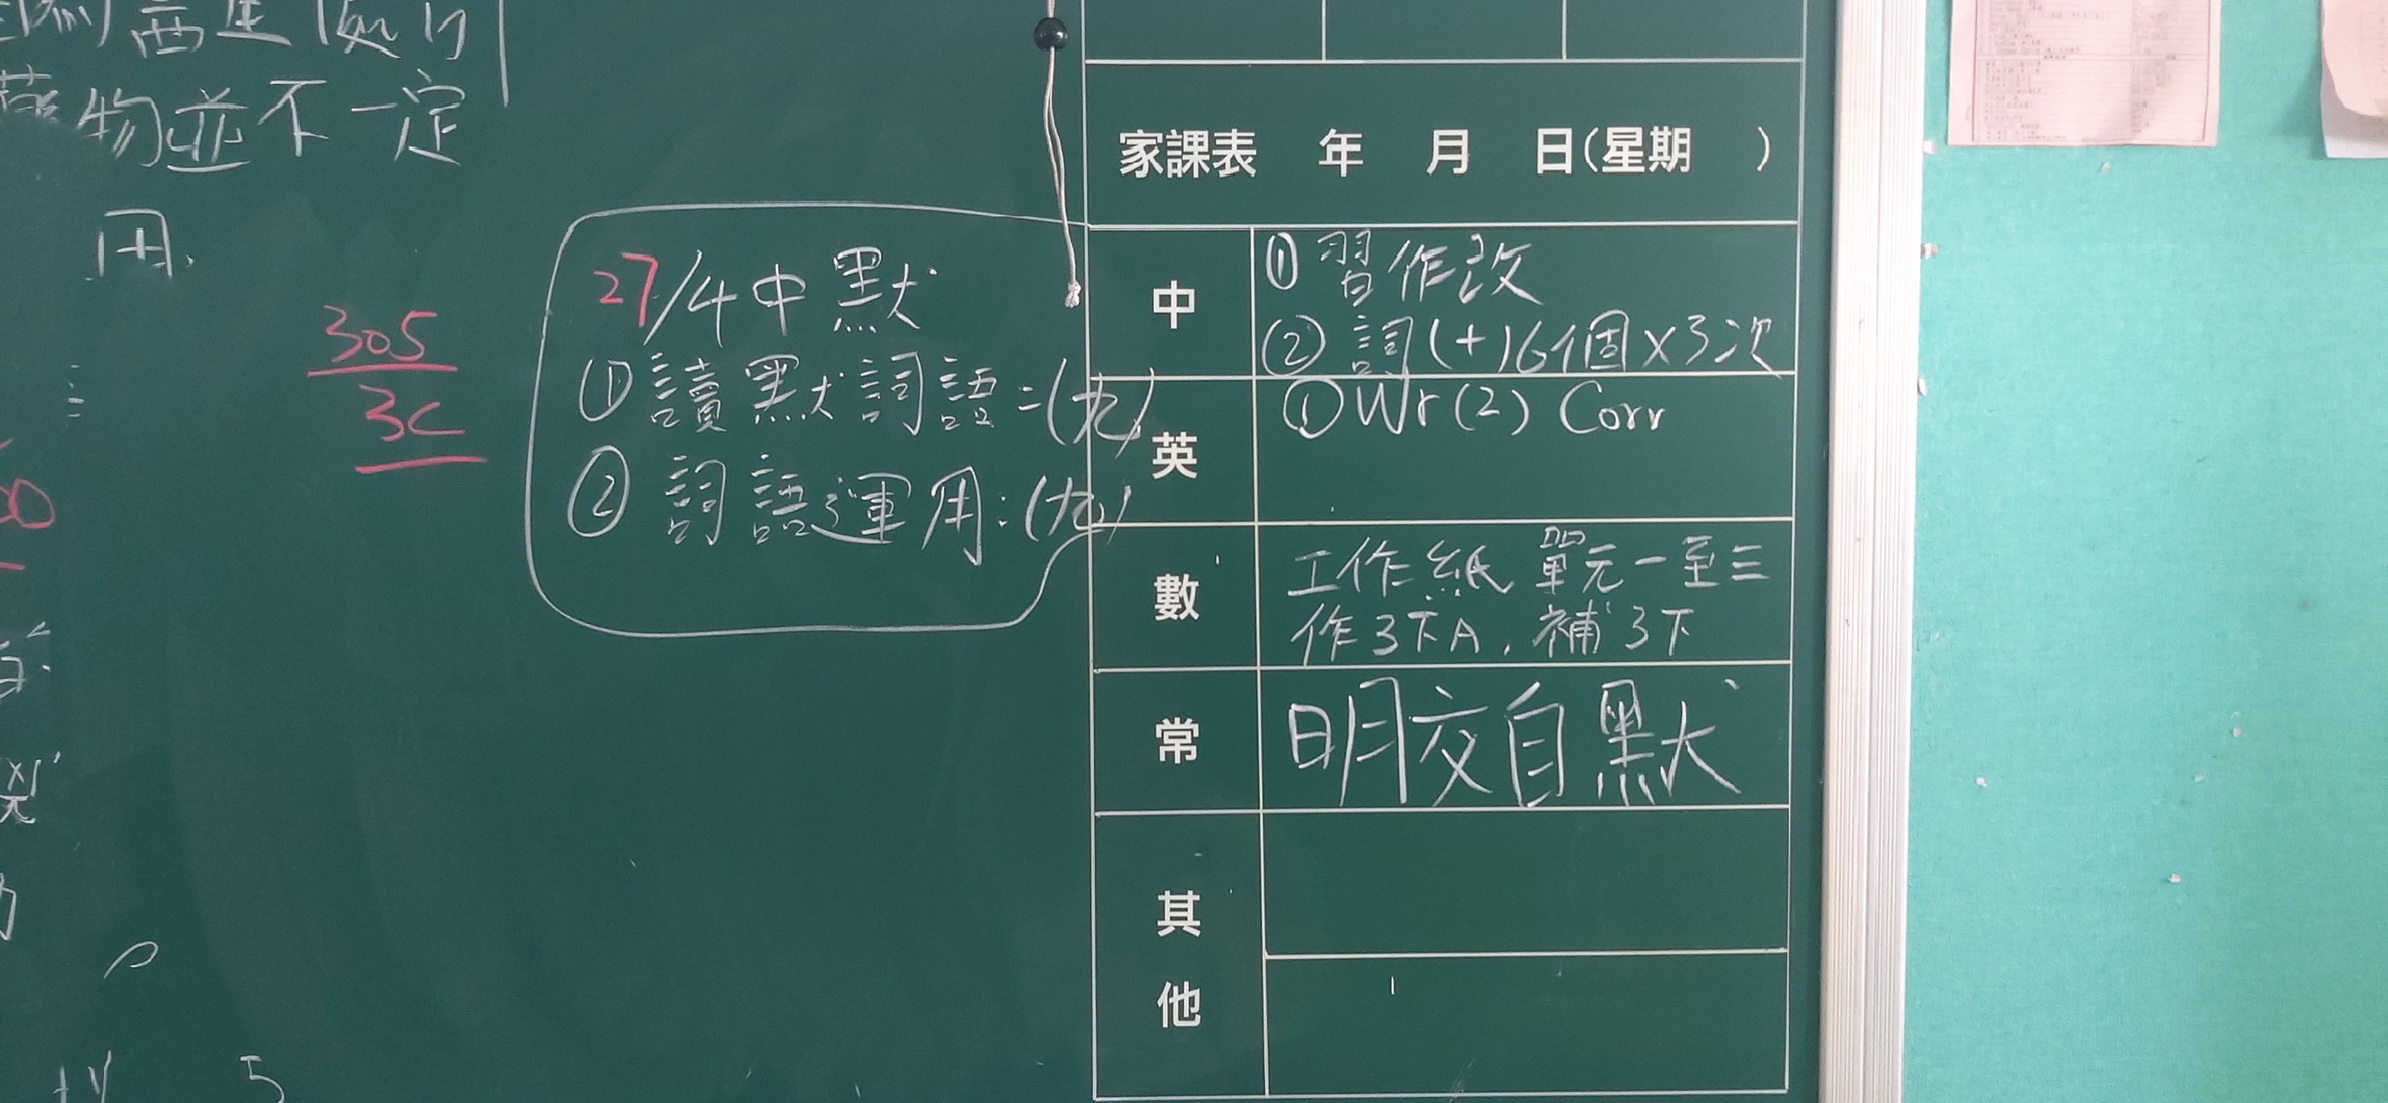 物並不一定
用.
305
3C
27/4中默
①讀默詞語:(九)
②詞語運用:(九)
家課表 年 月 日(星期 )
中
①習作改
②詞(十)6個×3次
英
①Wr(2) Corr
數
工作紙 單元一至三
作3下A, 補3下
常
明交自默
其他
5